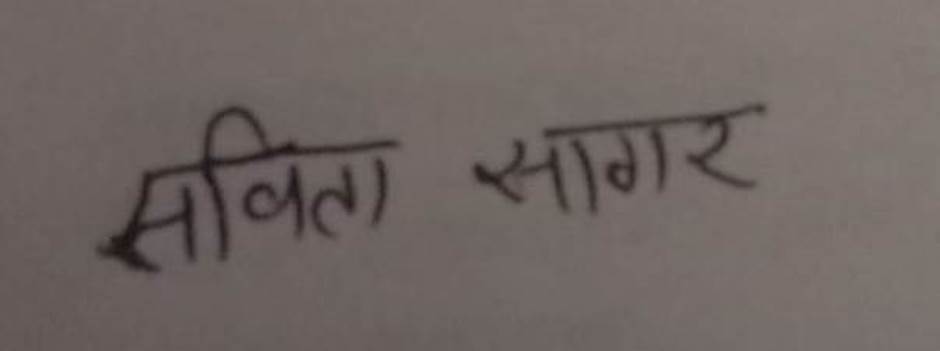 सविता सागर